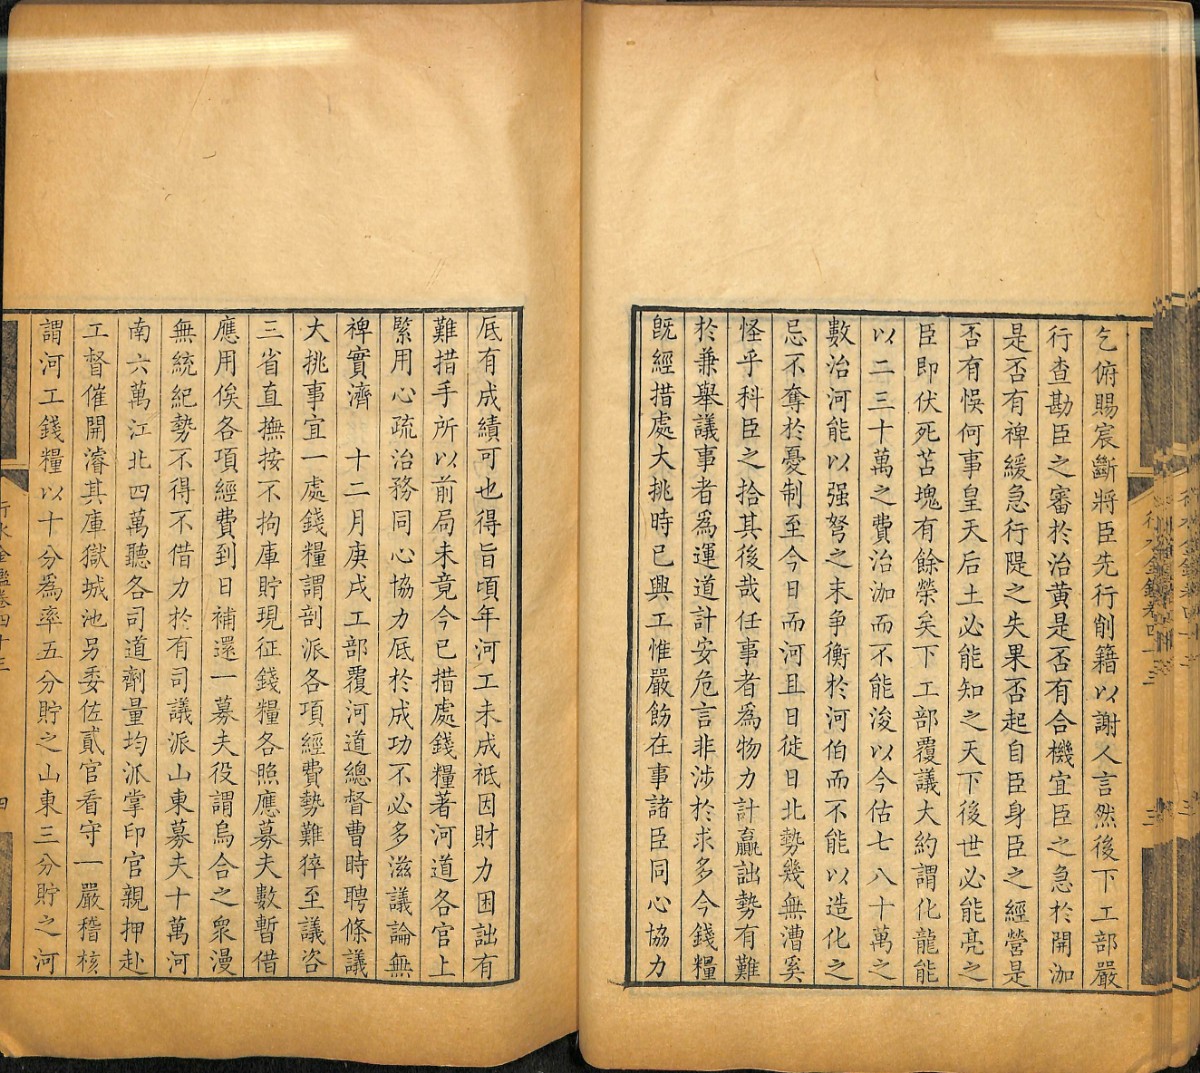 乞俯賜宸斷將臣先行削籍以謝人言然後下工部嚴
行查勘臣之審於治黃是否有合機宜臣之急於開泇
是否有裨緩急行隄之失果否起自臣身臣之經營是
否有悞何事皇天后土必能知之天下後世必能亮之
臣即伏死苫塊有餘榮矣下工部覆議大約謂化龍能
以二三十萬之費治泇而不能浚以今估七八十萬之
數治河能以强弩之末争衡於河伯而不能以造化之
忌不奪於憂制至今日而河且日徙日北勢幾無漕奚
怪乎科臣之拾其後哉任事者爲物力計贏詘勢有難
於兼舉議事者爲運道計安危言非涉於求多今錢糧
旣經措處大挑時已興工惟嚴飭在事諸臣同心協力
厎有成績可也得旨頃年河工未成祗因財力困詘有
難措手所以前局未竟今已措處錢糧著河道各官上
緊用心疏治務同心協力厎於成功不必多滋議論無
裨實濟　十二月庚戌工部覆河道總督曹時聘條議
大挑事宜一處錢糧謂剖派各項經費勢難猝至議咨
三省直撫按不拘庫貯現征錢糧各照應募夫數暫借
應用俟各項經費到日補還一募夫役謂烏合之衆漫
無統紀勢不得不借力於有司議派山東募夫十萬河
南六萬江北四萬聽各司道劑量均派掌印官親押赴
工督催開濬其庫獄城池另委佐貳官看守一嚴稽核
謂河工錢糧以十分爲率五分貯之山東三分貯之河
行水金鑑卷四十三
四